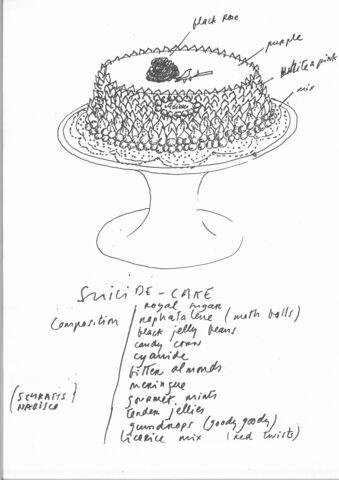 black rose
purple
white & pink
mix
Adieu
SUICIDE-CAKE
Composition
royal sugar
nephatalene (moth balls)
black jelly beans
candy corn
cyanide
bitter almonds
meringue
(SCHRAFTS)
NABISCO
gourmet mints
tender jellies
gumdrops (goody goody)
licorice mix (red twists)